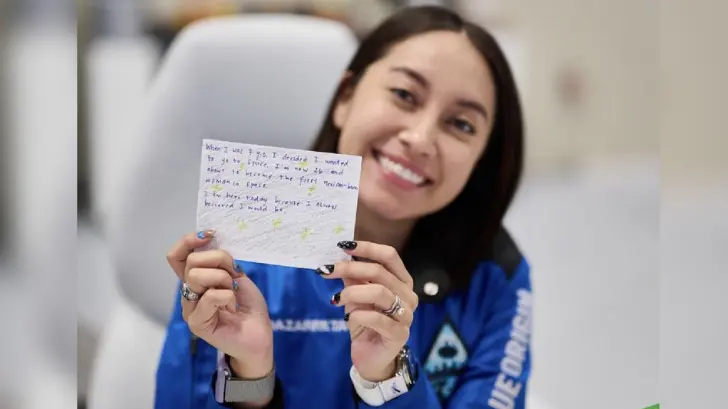 When I was 7 y.o. I decided I wanted
to go to space. I'm now 26 and
about to become the first Mexican-born
woman in space.
I am here today because I always
believed I would be.
BLUE ORIGIN